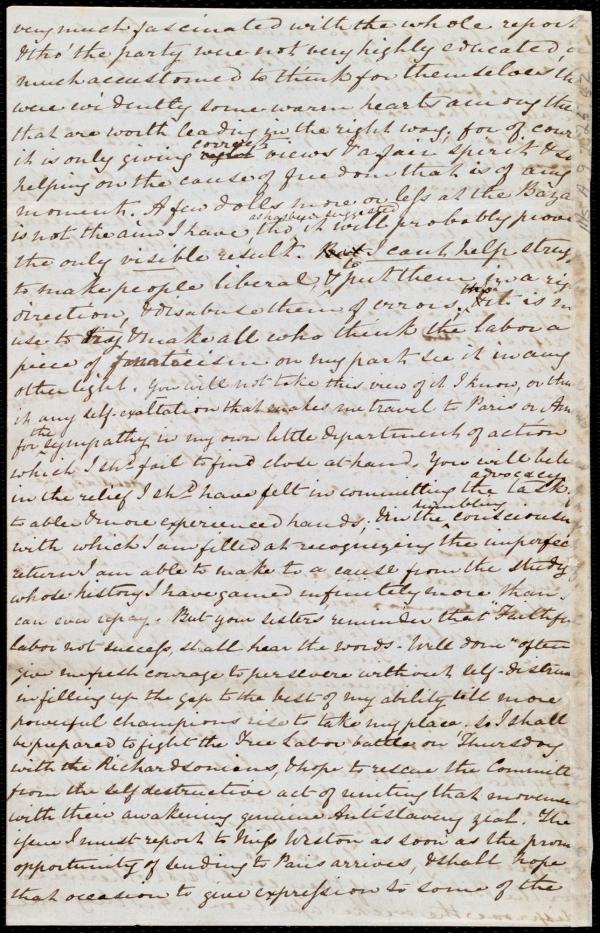 very much fascinated with the whole report
& tho' the party were not very highly educated, or
much accustomed to think for themselves, th
were evidently some warm hearts among the
that are worth leading in the right way, for of cour
it is only giving correct views & a fair spirit & so
helping on the cause of freedom that is of any
moment. A few dolls more or less at the Baza
is not the aim I have, tho' as has been suggested it will probably prove
the only visible result. But I can't help strug
to make people liberal, & to put them in a rig
direction, & disabuse them of errors, tho' it is n
use to try & make all who think the labor a
piece of fanaticism on my part see it in any
other light. You will not take this view of it I know, or think
it any self-exaltation that makes me travel to Paris or Am
for the sympathy in my own little department of action
which I shd. fail to find close at hand. You will belie
in the relief I shd. have felt in committing the advocacy task
to abler & more experienced hands; & in the humbling consciousn
with which I am filled at recognizing the imperfec
return I am able to make to a cause from the study
whose history I have gained infinitely more than I
can ever repay. But your sisters reminder that "Faithful
labor not success, shall hear the words - Well done" often
give me fresh courage to persevere without self-distrust
in filling up the gap to the best of my ability till more
powerful champions rise to take my place. So I shall
be prepared to fight the Free Labor battle on Thursday
with the Richardsonians, & hope to rescue the Committ
from the self destructive act of uniting that movemen
with their awakening genuine Antislavery zeal. The
issue I must report to Miss Weston as soon as the prom
opportunity of sending to Paris arrives, & shall hope
that occasion to give expression to some of the